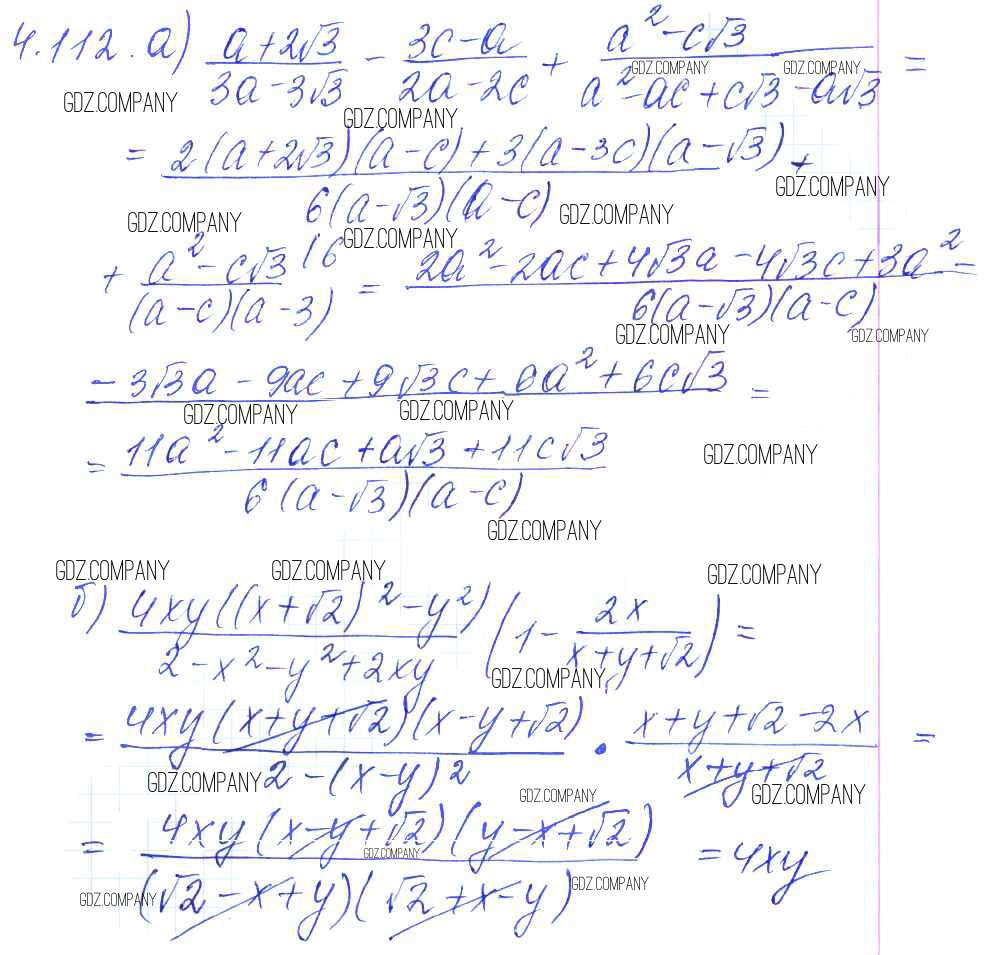 4.112. а) (a+2√3)/(3a-3√3) - (3c-a)/(2a-2c) + (a²-c√3)/(a²-ac+c√3-a√3) =
GDZ.COMPANY GDZ.COMPANY GDZ.COMPANY GDZ.COMPANY
= (2(a+2√3)(a-c)+3(a-3c)(a-√3))/(6(a-√3)(a-c)) +
GDZ.COMPANY GDZ.COMPANY GDZ.COMPANY GDZ.COMPANY
+ (a²-c√3 |6)/((a-c)(a-3)) = (2a²-2ac+4√3a-4√3c+3a²-)/(6(a-√3)(a-c))
GDZ.COMPANY GDZ.COMPANY
-3√3a-9ac+9√3c+6a²+6c√3 =
GDZ.COMPANY GDZ.COMPANY
= (11a²-11ac+a√3+11c√3)/(6(a-√3)(a-c))
GDZ.COMPANY
GDZ.COMPANY
GDZ.COMPANY GDZ.COMPANY GDZ.COMPANY
б) (4xy((x+√2)²-y²))/(2-x²-y²+2xy) (1-(2x)/(x+y+√2)) =
GDZ.COMPANY
= (4xy(x+y+√2)(x-y+√2))/(2-(x-y)²) · (x+y+√2-2x)/(x+y+√2) =
GDZ.COMPANY GDZ.COMPANY GDZ.COMPANY
= (4xy(x-y+√2)(y-x+√2))/((√2-x+y)(√2+x-y)) = 4xy
GDZ.COMPANY GDZ.COMPANY GDZ.COMPANY